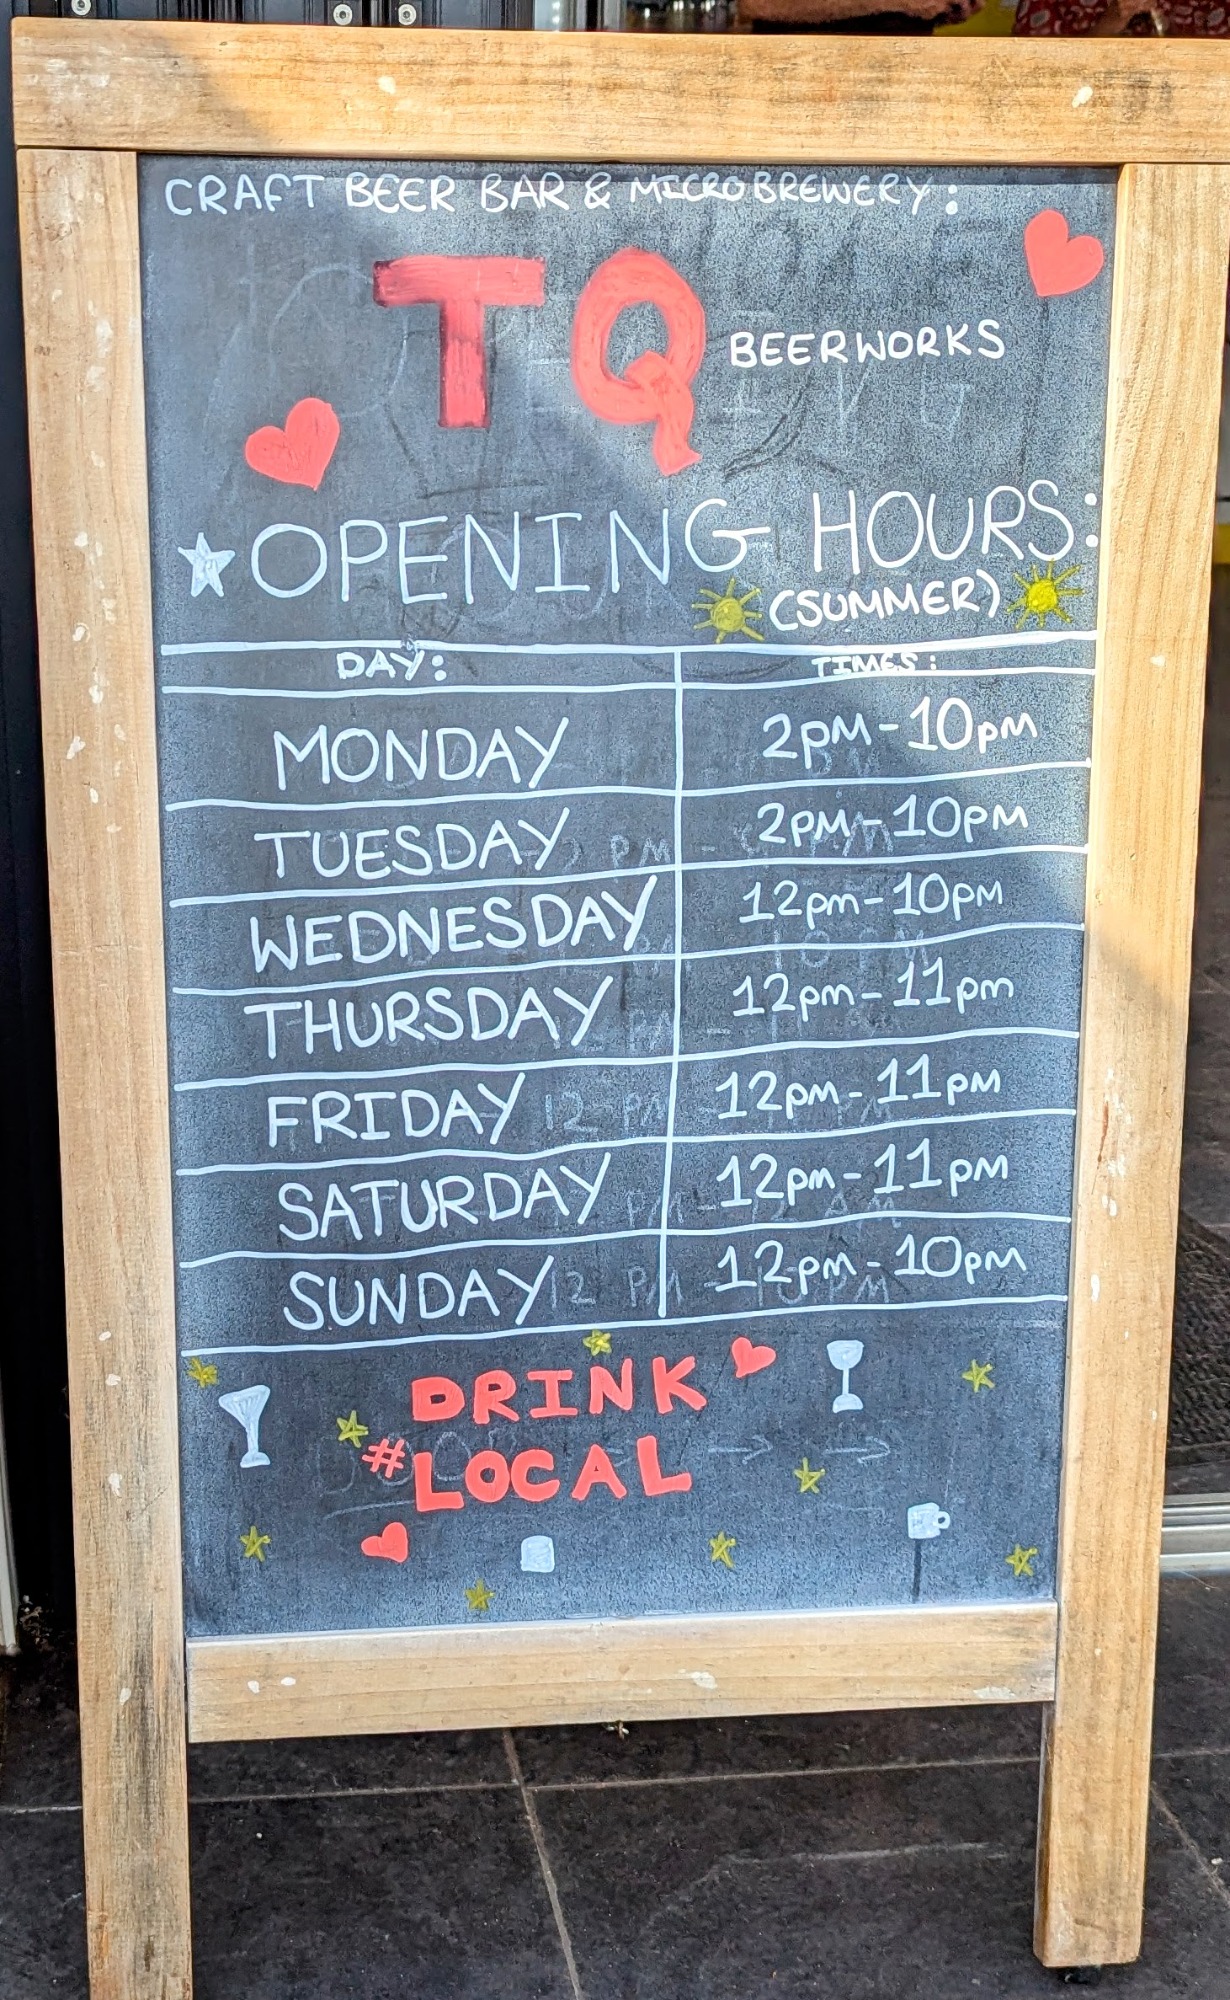 CRAFT BEER BAR & MICROBREWERY:
TQ BEERWORKS
OPENING HOURS:
(SUMMER)
DAY: TIMES:
MONDAY 2pm-10pm
TUESDAY 2pm-10pm
WEDNESDAY 12pm-10pm
THURSDAY 12pm-11pm
FRIDAY 12pm-11pm
SATURDAY 12pm-11pm
SUNDAY 12pm-10pm
DRINK
#LOCAL